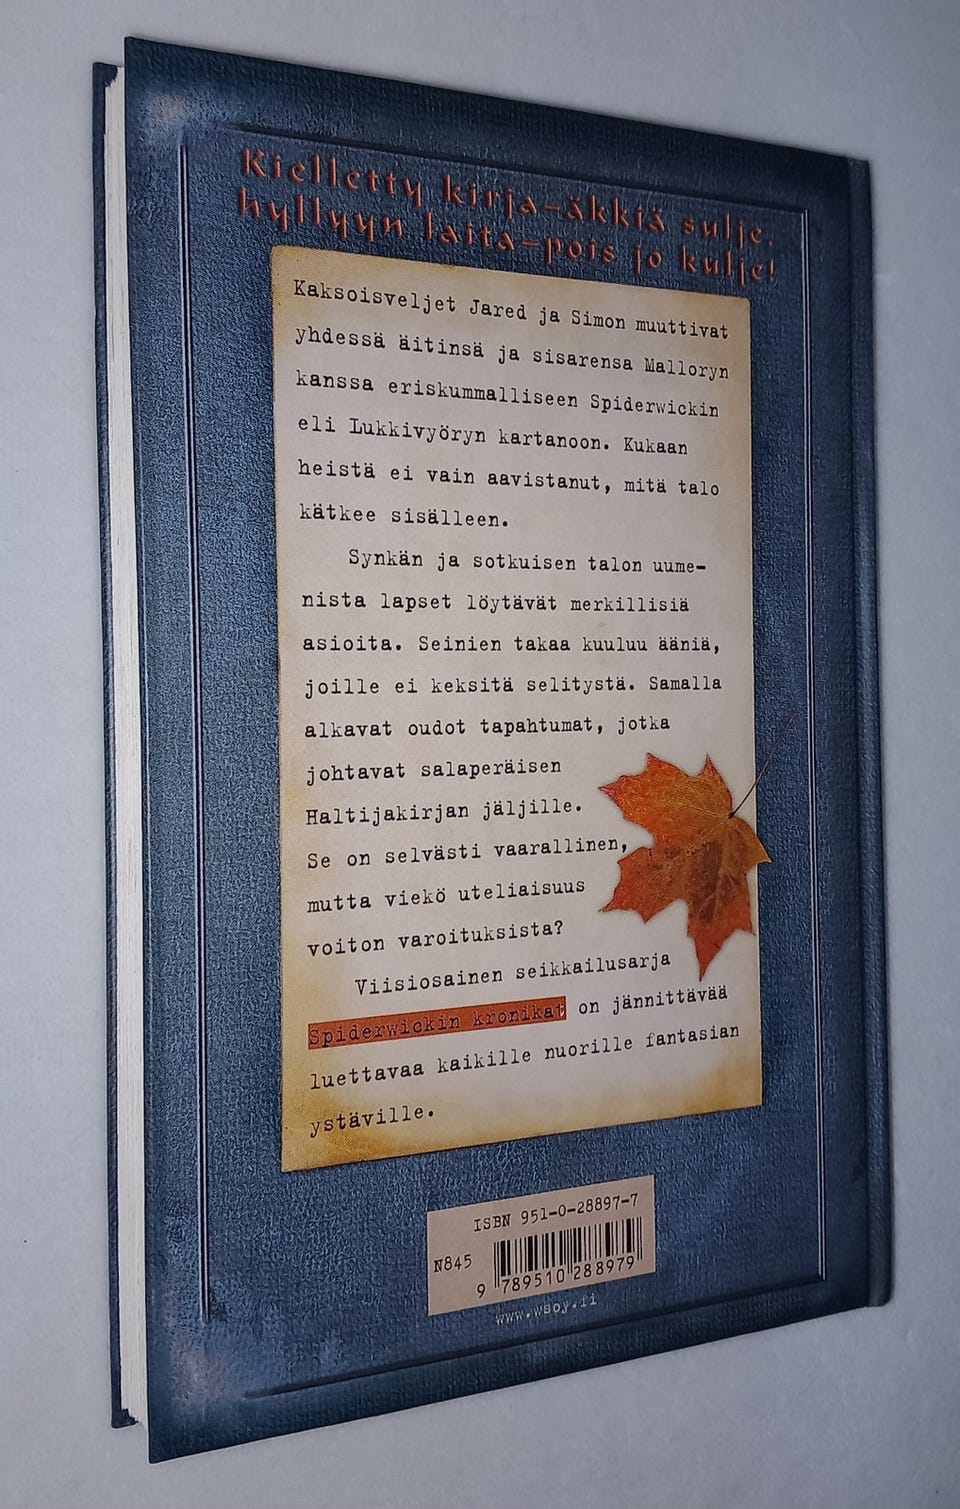 Kielletty kirja-äkkiä sulje,
hyllyyn laita-pois jo kulje!
Kaksoisveljet Jared ja Simon muuttivat
yhdessä äitinsä ja sisarensa Malloryn
kanssa eriskummalliseen Spiderwickin
eli Lukkivyöryn kartanoon. Kukaan
heistä ei vain aavistanut, mitä talo
kätkee sisälleen.
Synkän ja sotkuisen talon uume-
nista lapset löytävät merkillisiä
asioita. Seinien takaa kuuluu ääniä,
joille ei keksitä selitystä. Samalla
alkavat oudot tapahtumat, jotka
johtavat salaperäisen
Haltijakirjan jäljille.
Se on selvästi vaarallinen,
mutta viekö uteliaisuus
voiton varoituksista?
Viisiosainen seikkailusarja
Spiderwickin kronikat on jännittävää
luettavaa kaikille nuorille fantasian
ystäville.
ISBN 951-0-28897-7
N845
9 789510 288979
www.wsoy.fi